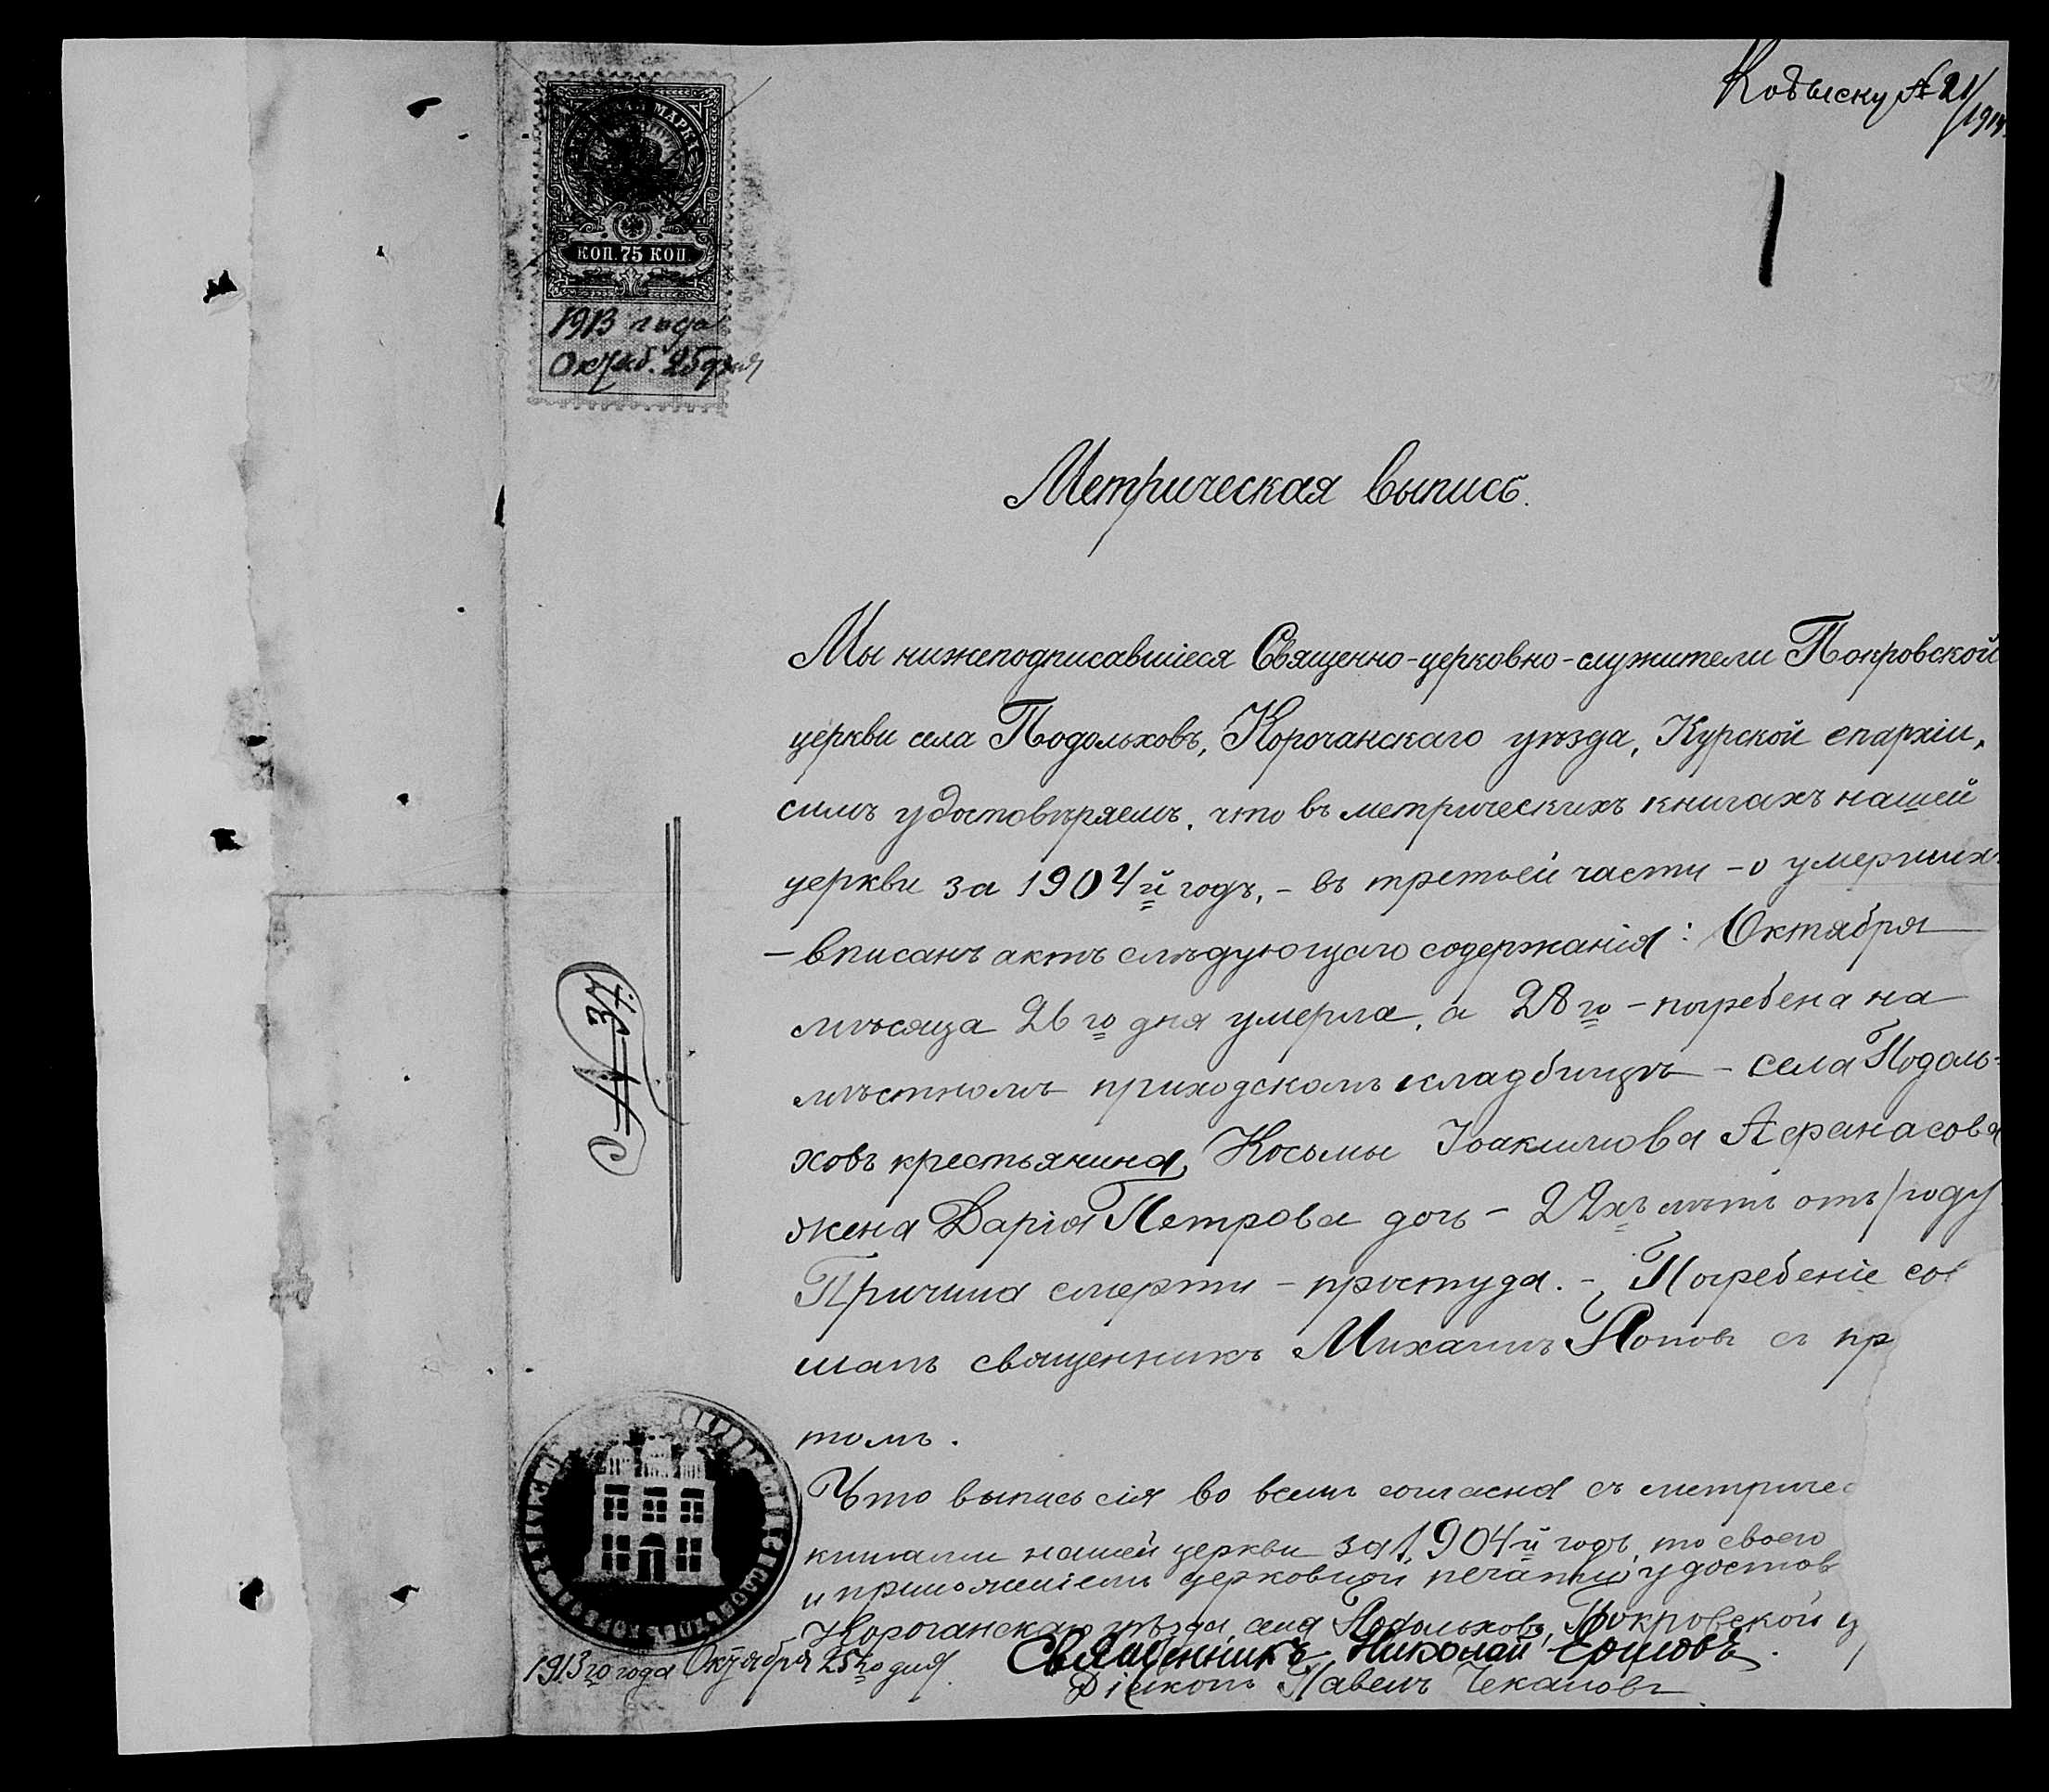 № 21/1914
КОП. 75 КОП.
1913 года
Октяб. 25 дня
Метрическая выпись.
Мы нижеподписавшіеся Священно-церковно-служители Покровской
церкви села Подольховъ, Корочанскаго уѣзда, Курской епархіи,
симъ удостовѣряемъ, что въ метрическихъ книгахъ нашей
церкви за 1904й годъ, - въ третьей части - о умершихъ
- вписанъ актъ слѣдующаго содержанія: Октября
мѣсяца 26го дня умерла, а 28го - погребена на
мѣстномъ приходскомъ кладбищѣ - села Подоль=
ховъ крестьянина, Косьмы Іоакимова Афанасова
жена Дарія Петрова дочь - 22хъ лѣтъ отъ роду
Причина смерти - простуда. - Погребеніе сов
шалъ священникъ Михаилъ Поповъ съ пр
томъ.
Что выпись сія во всемъ согласна съ метричес
книгами нашей церкви за 1904й годъ, то своего
и приложеніемъ церковной печати удостов
Корочанскаго уѣзда, села Подольховъ, Покровской ц
Священникъ Николай Ершовъ.
1913го года Октября 25го дня.
Діаконъ Павелъ Чекановъ